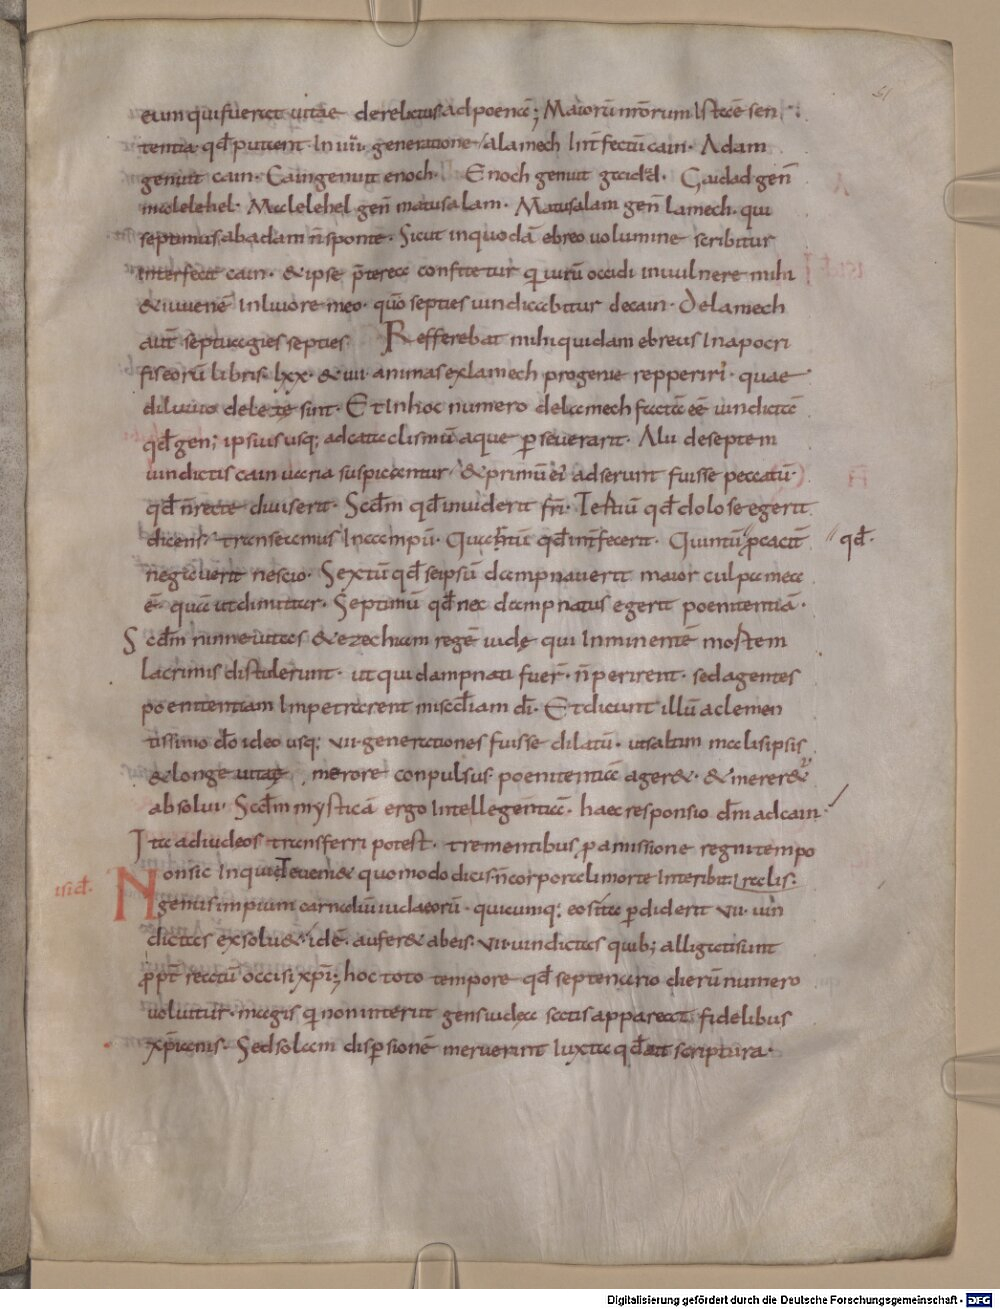 51
eum qui fuerat uitae derelictus ad poenā; Maiorū nr̄orum ista ē sen
tentia qđ putent. In uii. generatione a lamech Int̄fectū cain. Adam
genuit cain. Cain genuit enoch. Enoch genuit gaidad. Gaidad geñ
malelehel. Malelehel geñ matusalam. Matusalam geñ lamech. qui
septimus ab adam n̄ sponte. Sicut in quodā ebreo uolumine scribitur
interfecit cain. & ipse p̄terea confitetur q uirū occidi in uulnere mihi
& iuuenē In liuore meo. qm̄o septies uindicabitur de cain. De lamech
aut̄ septuagies septies. Refferebat mihi quidam ebreus In apocri
fis eorū libris. lxx. & uii. animas ex lamech progenie repperiri. quae
diluuio deletę sint. Et In hoc numero de lamech factā eē uindictā
qđ gen; ipsius usq; ad cataclismū aquę p̱seuerarit. Alii de septem
uindictis cain uaria suspicantur. & primū ei adserunt fuisse peccatū.
qđ n̄ recte diuiserit. Scđm qđ inuiderit fr̄i. Tertiū qđ dolose egerit
dicens transeamus In campū. Quartū qđ int̄fecerit. Quintū pcacit̄ // qđ.
negauerit nescio. Sextū qđ se ipsū dampnauerit maior culpa mea
ē. quā ut dimittar. Septimū qđ nec dampnatus egerit poenitentiā.
Scđm nineuitas & ezechiam regē iudę qui Inminentē mortem
lacrimis distulerunt. ut qui dampnati fuer̄. n̄ perirent. sed agentes
poenitentiam Impetrarent miscđiam dī. Et dicunt illū a clemen
tissimo do ideo usq; VII. generationes fuisse dilatū. ut saltim malis ipsis
& longe uitae, merore conpulsus poenitentiā ager&. & merer&ur
absolui. Scđm mysticā ergo Intellegentiā. haec responsio dñi ad cain
Ita ad iudeos transferri potest. trementibus p amissione regni tempo
Non sic Inquit euenì& quomodo dicis. n̄ corporali morte Interibit. ralis.
isiđ.
genus impium carnaliū iudaeorū. quicumq; eos ita p̱diderit VII. uin
dictas exsolu&. idē. aufer& ab eis. VII. uindictas quib; alligati sunt
p̱pt̄ reatū occisi xpī; hoc toto tempore qđ septenario dierū numero
uoluitur. magis q non interiit gens iudea satis apparent fidelibus
xp̄ianis. Sed solam disp̱sionē meruerunt Iuxta qđ ait scriptura.
Digitalisierung gefördert durch die Deutsche Forschungsgemeinschaft - DFG